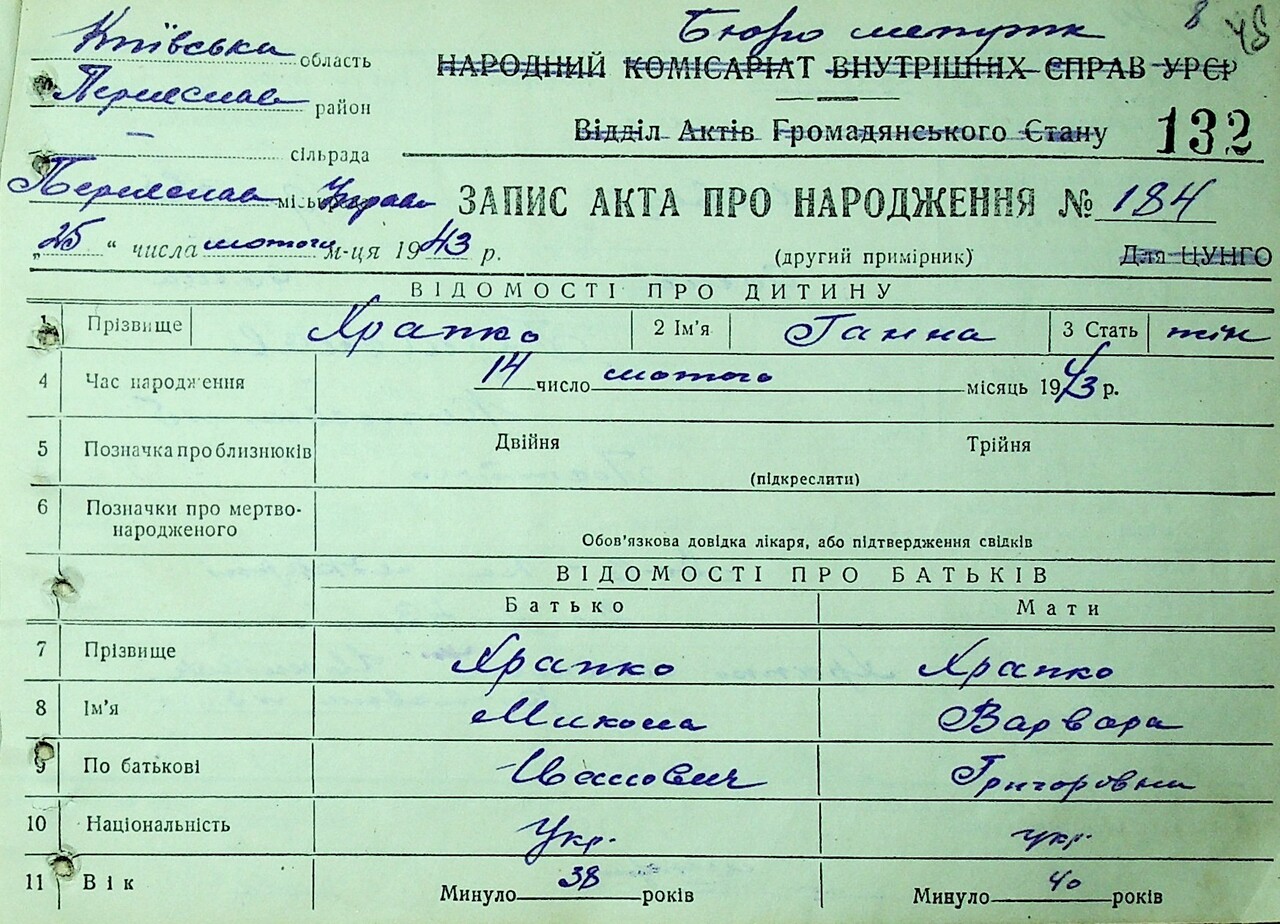 Київська область
Бюро метрик
8
48
НАРОДНИЙ КОМІСАРІАТ ВНУТРІШНІХ СПРАВ УРСР
Переяслав район
Відділ Актів Громадянського Стану
132
— сільрада
Переяслав міськрада Управ
ЗАПИС АКТА ПРО НАРОДЖЕННЯ № 184
„25" числа лютого м-ця 1943 р.
(другий примірник)
Для ЦУНГО
ВІДОМОСТІ ПРО ДИТИНУ
1 Прізвище Храпко 2 Ім'я Ганна 3 Стать жін
4 Час народження 14 число лютого місяць 1943 р.
5 Позначка про близнюків Двійня Трійня
(підкреслити)
6 Позначки про мертво-
народженого
Обов'язкова довідка лікаря, або підтвердження свідків
ВІДОМОСТІ ПРО БАТЬКІВ
Батько Мати
7 Прізвище Храпко Храпко
8 Ім'я Микола Варвара
9 По батькові Іванович Григоровна
10 Національність Укр. укр.
11 Вік Минуло 38 років Минуло 40 років